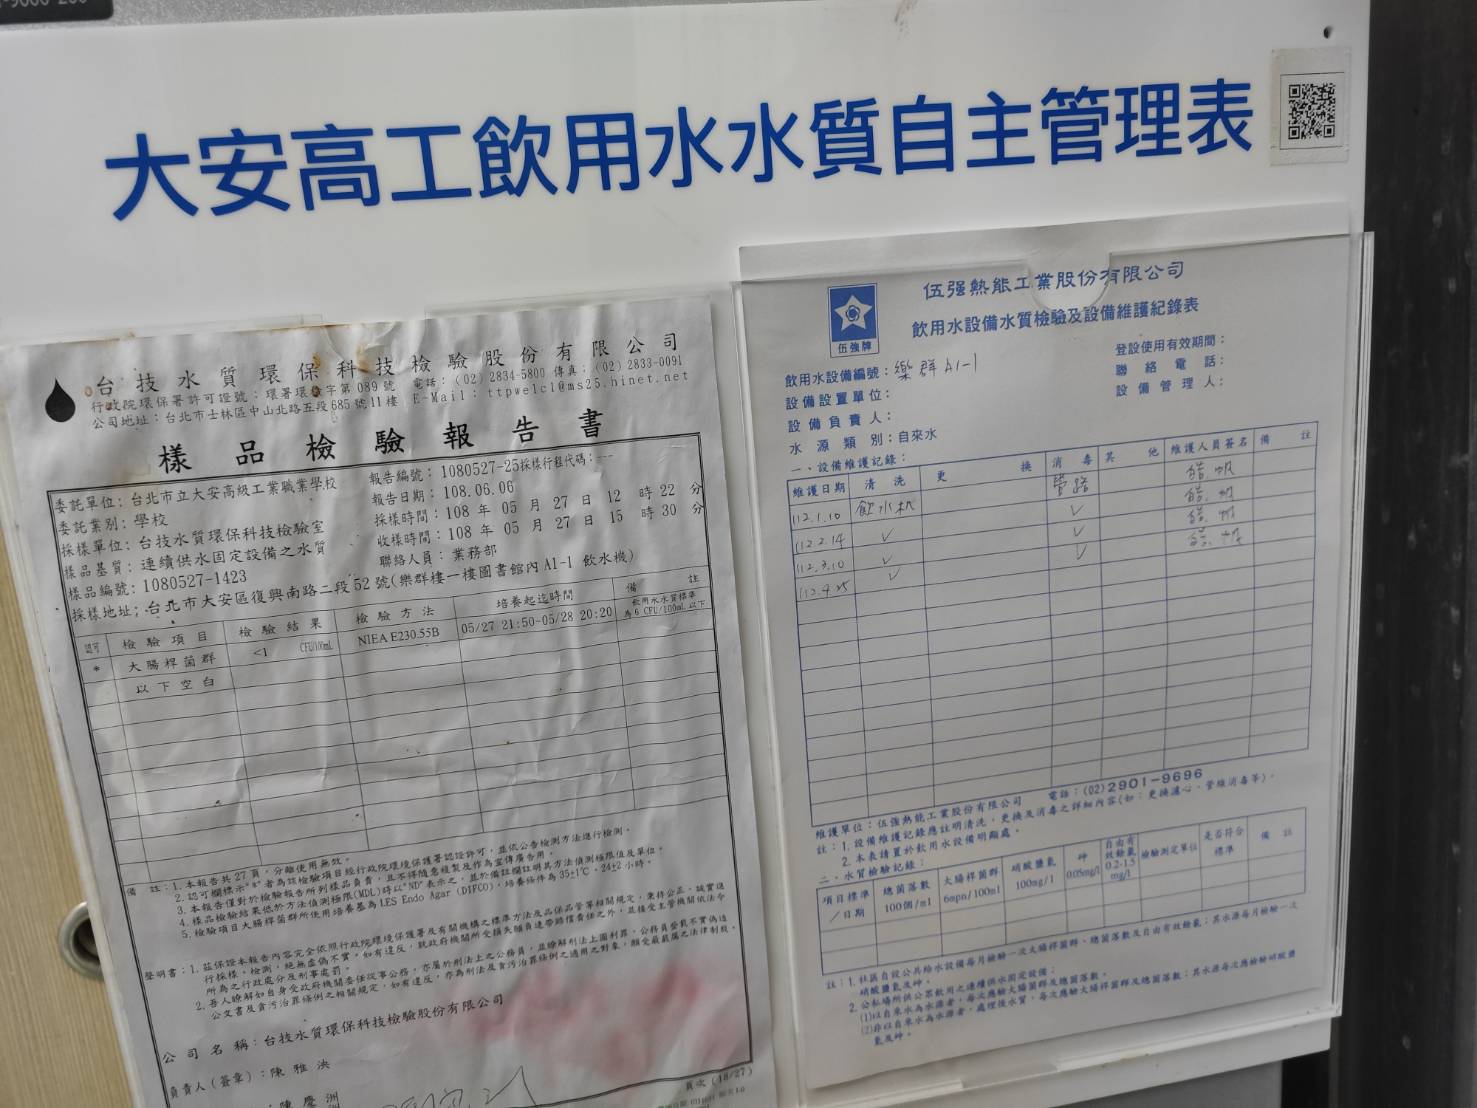 大安高工飲用水水質自主管理表
台技水質環保科技檢驗股份有限公司
行政院環保署許可證號：環署環檢字第089號 電話：(02) 2834-5800 傳真：(02) 2833-0091
公司地址：台北市士林區中山北路五段685號11樓 E-Mail：ttpwelcl@ms25.hinet.net
樣品檢驗報告書
委託單位：台北市立大安高級工業職業學校
委託業別：學校
採樣單位：台技水質環保科技檢驗室
樣品基質：連續供水固定設備之水質
樣品編號：1080527-1423
報告編號：1080527-25採樣行程代碼：---
報告日期：108.06.06
採樣時間：108 年 05 月 27 日 12 時 22 分
收樣時間：108 年 05 月 27 日 15 時 30 分
聯絡人員：業務部
採樣地址：台北市大安區復興南路二段52號(樂群樓一樓圖書館內A1-1 飲水機)
認可 檢驗項目 檢驗結果 檢驗方法 培養起迄時間 備註
* 大腸桿菌群 <1 CFU/100mL NIEA E230.55B 05/27 21:50-05/28 20:20 飲用水水質標準為6 CFU/100mL 以下
以下空白
備註：1.本報告共27頁，分離使用無效。
2.認可欄標示"*"者為該檢驗項目經行政院環境保護署認證許可，並依公告檢測方法進行檢測。
3.本報告僅對於檢驗報告所列樣品負責，且不得隨意複製及作為宣傳廣告用。
4.樣品檢驗結果低於方法偵測極限(MDL)時以"ND"表示之，並於備註欄註明其方法偵測極限值及單位。
5.檢驗項目大腸桿菌群所使用培養基為LES Endo Agar (DIFCO)，培養條件為35±1℃、24±2 小時。
聲明書：1.茲保證本報告內容完全依照行政院環境保護署及有關機構之標準方法及品保品管等相關規定，秉持公正、誠實進
行採樣、檢測，絕無虛偽不實，如有違反，就政府機關所受損失願負連帶賠償責任之外，並接受主管機關依法令
所為之行政處分及刑事處罰。
2.吾人瞭解如自身受政府機關委任從事公務，亦屬於刑法上之公務員，並瞭解刑法上圖利罪、公務員登載不實偽造
公文書及貪污治罪條例之相關規定，如有違反，亦為刑法及貪污治罪條例之適用之對象，願受最嚴厲之法律制裁。
公司名稱：台技水質環保科技檢驗股份有限公司
負責人(簽章)：陳雅洪
陳慶洲
頁次 (18/27)
伍強牌
伍强熱能工業股份有限公司
飲用水設備水質檢驗及設備維護紀錄表
飲用水設備編號：樂群A1-1
設備設置單位：
設備負責人：
水源類別：自來水
登設使用有效期間：
聯絡電話：
設備管理人：
一、設備維護記錄：
維護日期 清洗 更換 消毒 其他 維護人員簽名 備註
112.1.10 飲水机 管路
112.2.14 ✓ ✓
112.3.10 ✓ ✓
112.4.25 ✓ ✓
維護單位：伍強熱能工業股份有限公司 電話：(02)2901-9696
註：1.設備維護記錄應註明清洗、更換及消毒之詳細內容(如：更換濾心、管維消毒等)。
2.本表請置於飲用水設備明顯處。
二、水質檢驗記錄：
項目標準/日期 總菌落數 100個/ml 大腸桿菌群 6mpn/100ml 硝酸鹽氮 100mg/l 砷 0.05mg/l 自由有效餘氯 0.2-1.5 mg/l 檢驗測定單位 是否符合標準 備註
註：1.社區自設公共給水設備每月檢驗一次大腸桿菌群、總菌落數及自由有效餘氯；其水源每月檢驗一次
硝酸鹽氮及砷。
2.公私場所供公眾飲用之連續供水固定設備：
(1)以自來水為水源者，每次應驗大腸桿菌群及總菌落數。
(2)非以自來水為水源者，處理後水質，每次應驗大腸桿菌群及總菌落數；其水源每次應檢驗硝酸鹽
氮及砷。